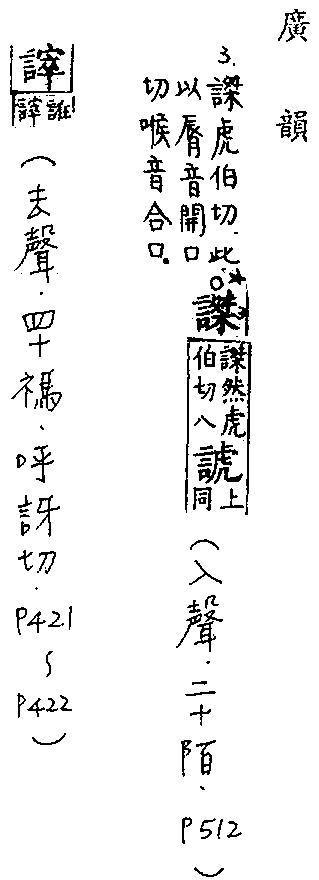 廣韻
3.謋虎伯切.此
以脣音開口
切喉音合口。
謋
謋然虎
伯切八
諕
上
同
(入聲.二十陌.
P512)
謋
(去聲.四十禡.呼訝切.P421
~
P422)